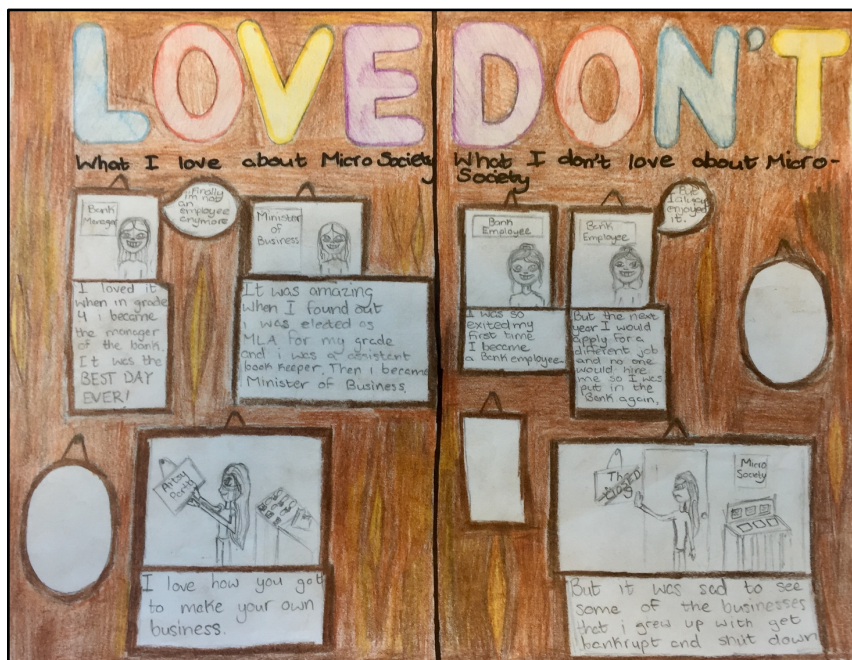 LOVE
What I love about Micro Society
Bank
Manager
Finally
i'm not
an
employee
anymore
Minister
of
Business
I loved it
when in grade
4 i became
the manager
of the bank.
It was the
BEST DAY
EVER!
It was amazing
when I found out
i was elected as
MLA for my grade
and i was a assistant
book keeper. Then i became
Minister of Business.
Artsy
I love how you got
to make your own
business.
DON'T
What I don't love about Micro-
Society
Bank
Employee
I was so
exited my
first time
I became
a Bank employee
Bank
Employee
But
I always
enjoyed
it.
But the next
year I would
apply for a
different job
and no one
would hire
me so I was
put in the
Bank again.
CLOSED
Micro
Society
But it was sad to see
some of the businesses
that i grew up with get
bankrupt and shut down